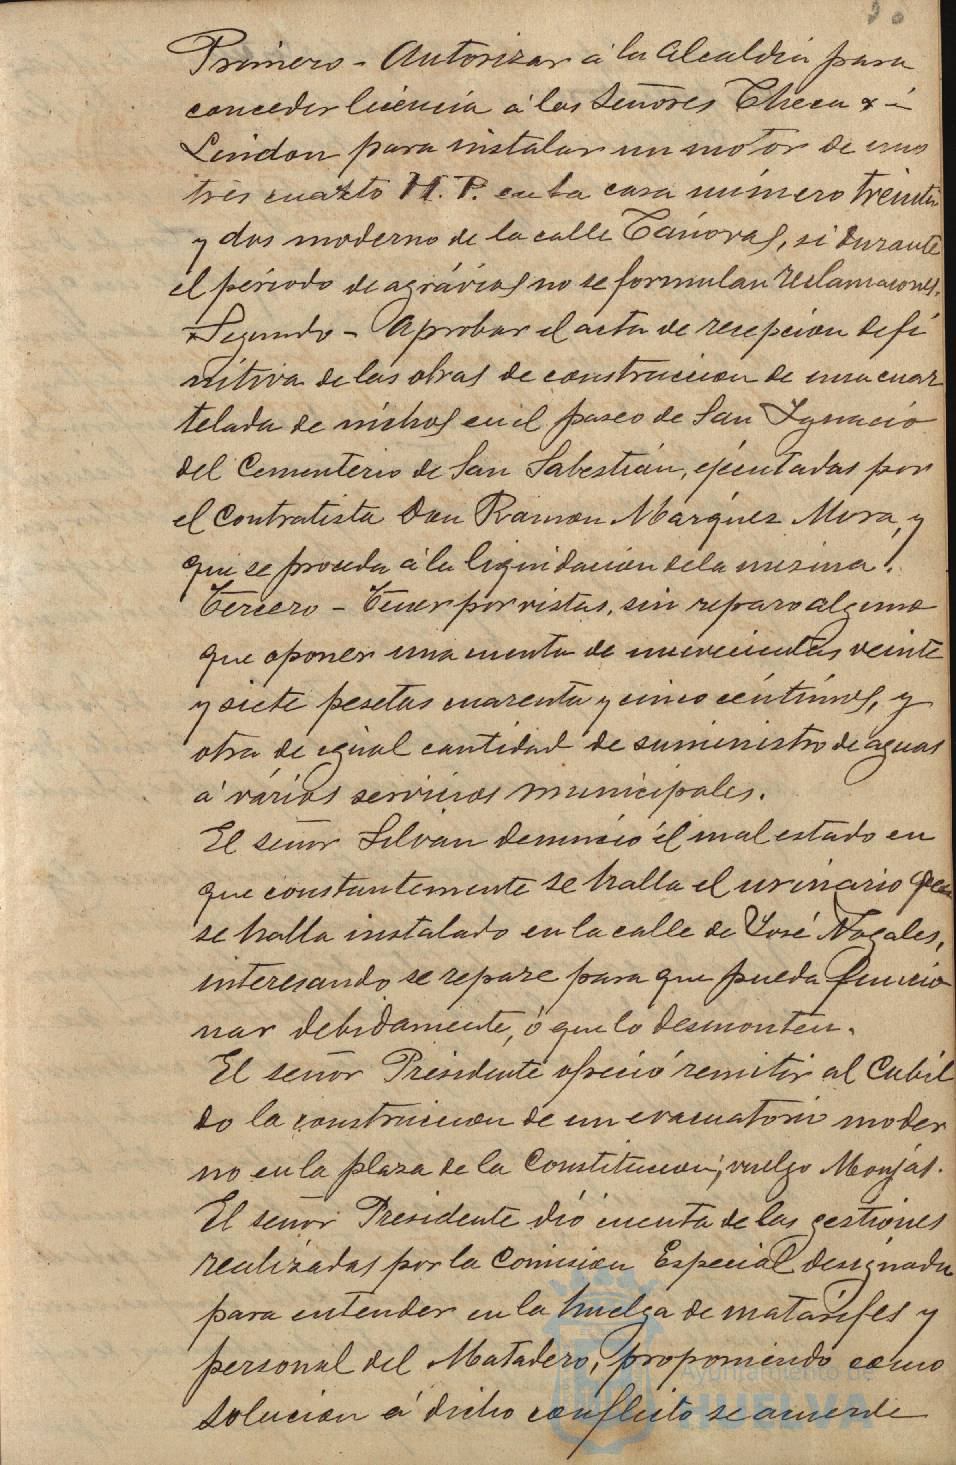 Primero - Autorizar á la Alcaldía para
conceder licencia á los Señores Checa &
Lindon para instalar un motor de uno
tres cuarto H.P. en la casa número treinta
y dos moderno de la calle Cánovas, si durante
el período de agrávios no se formulan reclamaciones.
Segundo - Aprobar el acta de recepcion defi
nitiva de las obras de construccion de una cuar
telada de nichos en el paseo de San Ignacio
del Cementerio de San Sabestián, ejecutadas por
el contratista Don Ramon Marquez Mora, y
que se proceda á la liquidacion de la misma.
Tercero - Tener por vistas, sin reparo alguno
que oponer una cuenta de nuevecientas veinte
y siete pesetas cuarenta y cinco céntimos, y
otra de igual cantidad de suministro de aguas
á vários servicios municipales.
El señor Silvan denunció el mal estado en
que constantemente se halla el urinario que
se halla instalado en la calle de José Nogales,
interesando se repare para que pueda funcio
nar debidamente, ó que lo desmonten.
El señor Presidente ofreció remitir al Cabil
do la construccion de un evacuatorio moder
no en la plaza de la Constitucion, vulgo Monjas.
El señor Presidente dió cuenta de las gestiones
realizadas por la Comision Especial designada
para entender en la huelga de matarifes y
personal del Matadero, proponiendo como
solucion á dicho conflicto se acuerde
Ayuntamiento de
HUELVA